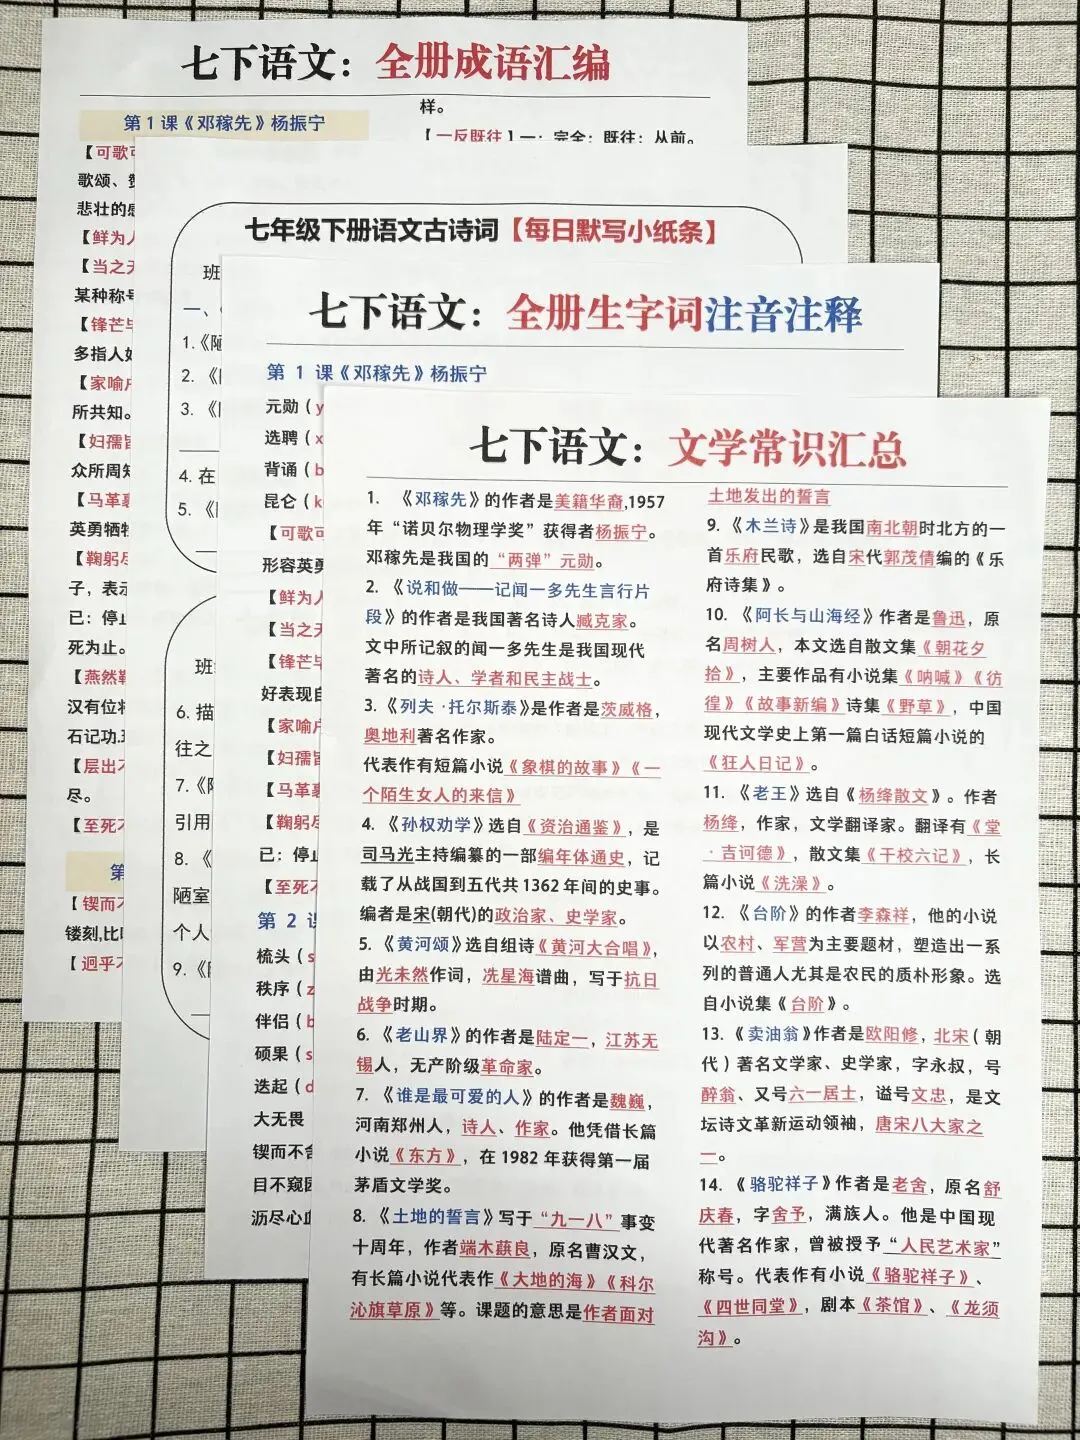 七下语文：全册成语汇编
第1课《邓稼先》杨振宁
【可歌
歌颂、
悲壮的
【鲜为人
【当之
某种称号
【锋芒
多指人
【家喻
所共知。
【妇孺
众所周知
【马革
英勇牺牲
【鞠躬
子，表示
已：停止
死为止。
【燕然
汉有位将
石记功
【层出
尽。
【至死
第
【锲而
镂刻，比
【迥乎
样。
【一反既往】一：完全；既往：从前。
七年级下册语文古诗词【每日默写小纸条】
班
一、
1.《陋
2.《
3.《
4. 在
5.《
班
6. 描
往之
7.《
引用
8.《
陋室
个人
9.《
七下语文：全册生字词注音注释
第 1 课《邓稼先》杨振宁
元勋（y
选聘（x
背诵（b
昆仑（k
【可歌
形容英勇
【鲜为人
【当之
【锋芒
好表现自
【家喻
【妇孺
【马革
【鞠躬
已：停止
【至死
第 2 课
梳头（s
秩序（z
伴侣（b
硕果（s
迭起（d
大无畏
锲而不舍
目不窥园
沥尽心血
七下语文：文学常识汇总
1. 《邓稼先》的作者是美籍华裔,1957
年“诺贝尔物理学奖”获得者杨振宁。
邓稼先是我国的“两弹”元勋。
2. 《说和做——记闻一多先生言行片
段》的作者是我国著名诗人臧克家。
文中所记叙的闻一多先生是我国现代
著名的诗人、学者和民主战士。
3. 《列夫·托尔斯泰》是作者是茨威格，
奥地利著名作家。
代表作有短篇小说《象棋的故事》《一
个陌生女人的来信》
4. 《孙权劝学》选自《资治通鉴》，是
司马光主持编纂的一部编年体通史，记
载了从战国到五代共1362年间的史事。
编者是宋(朝代)的政治家、史学家。
5. 《黄河颂》选自组诗《黄河大合唱》，
由光未然作词，冼星海谱曲，写于抗日
战争时期。
6. 《老山界》的作者是陆定一，江苏无
锡人，无产阶级革命家。
7. 《谁是最可爱的人》的作者是魏巍，
河南郑州人，诗人、作家。他凭借长篇
小说《东方》，在1982年获得第一届
茅盾文学奖。
8. 《土地的誓言》写于“九一八”事变
十周年，作者端木蕻良，原名曹汉文，
有长篇小说代表作《大地的海》《科尔
沁旗草原》等。课题的意思是作者面对
土地发出的誓言
9. 《木兰诗》是我国南北朝时北方的一
首乐府民歌，选自宋代郭茂倩编的《乐
府诗集》。
10. 《阿长与山海经》作者是鲁迅，原
名周树人，本文选自散文集《朝花夕
拾》，主要作品有小说集《呐喊》《彷
徨》《故事新编》诗集《野草》，中国
现代文学史上第一篇白话短篇小说的
《狂人日记》。
11. 《老王》选自《杨绛散文》。作者
杨绛，作家，文学翻译家。翻译有《堂
·吉诃德》，散文集《干校六记》，长
篇小说《洗澡》。
12. 《台阶》的作者李森祥，他的小说
以农村、军营为主要题材，塑造出一系
列的普通人尤其是农民的质朴形象。选
自小说集《台阶》。
13. 《卖油翁》作者是欧阳修，北宋（朝
代）著名文学家、史学家，字永叔，号
醉翁、又号六一居士，谥号文忠，是文
坛诗文革新运动领袖，唐宋八大家之
一。
14. 《骆驼祥子》作者是老舍，原名舒
庆春，字舍予，满族人。他是中国现
代著名作家，曾被授予“人民艺术家”
称号。代表作有小说《骆驼祥子》、
《四世同堂》，剧本《茶馆》、《龙须
沟》。